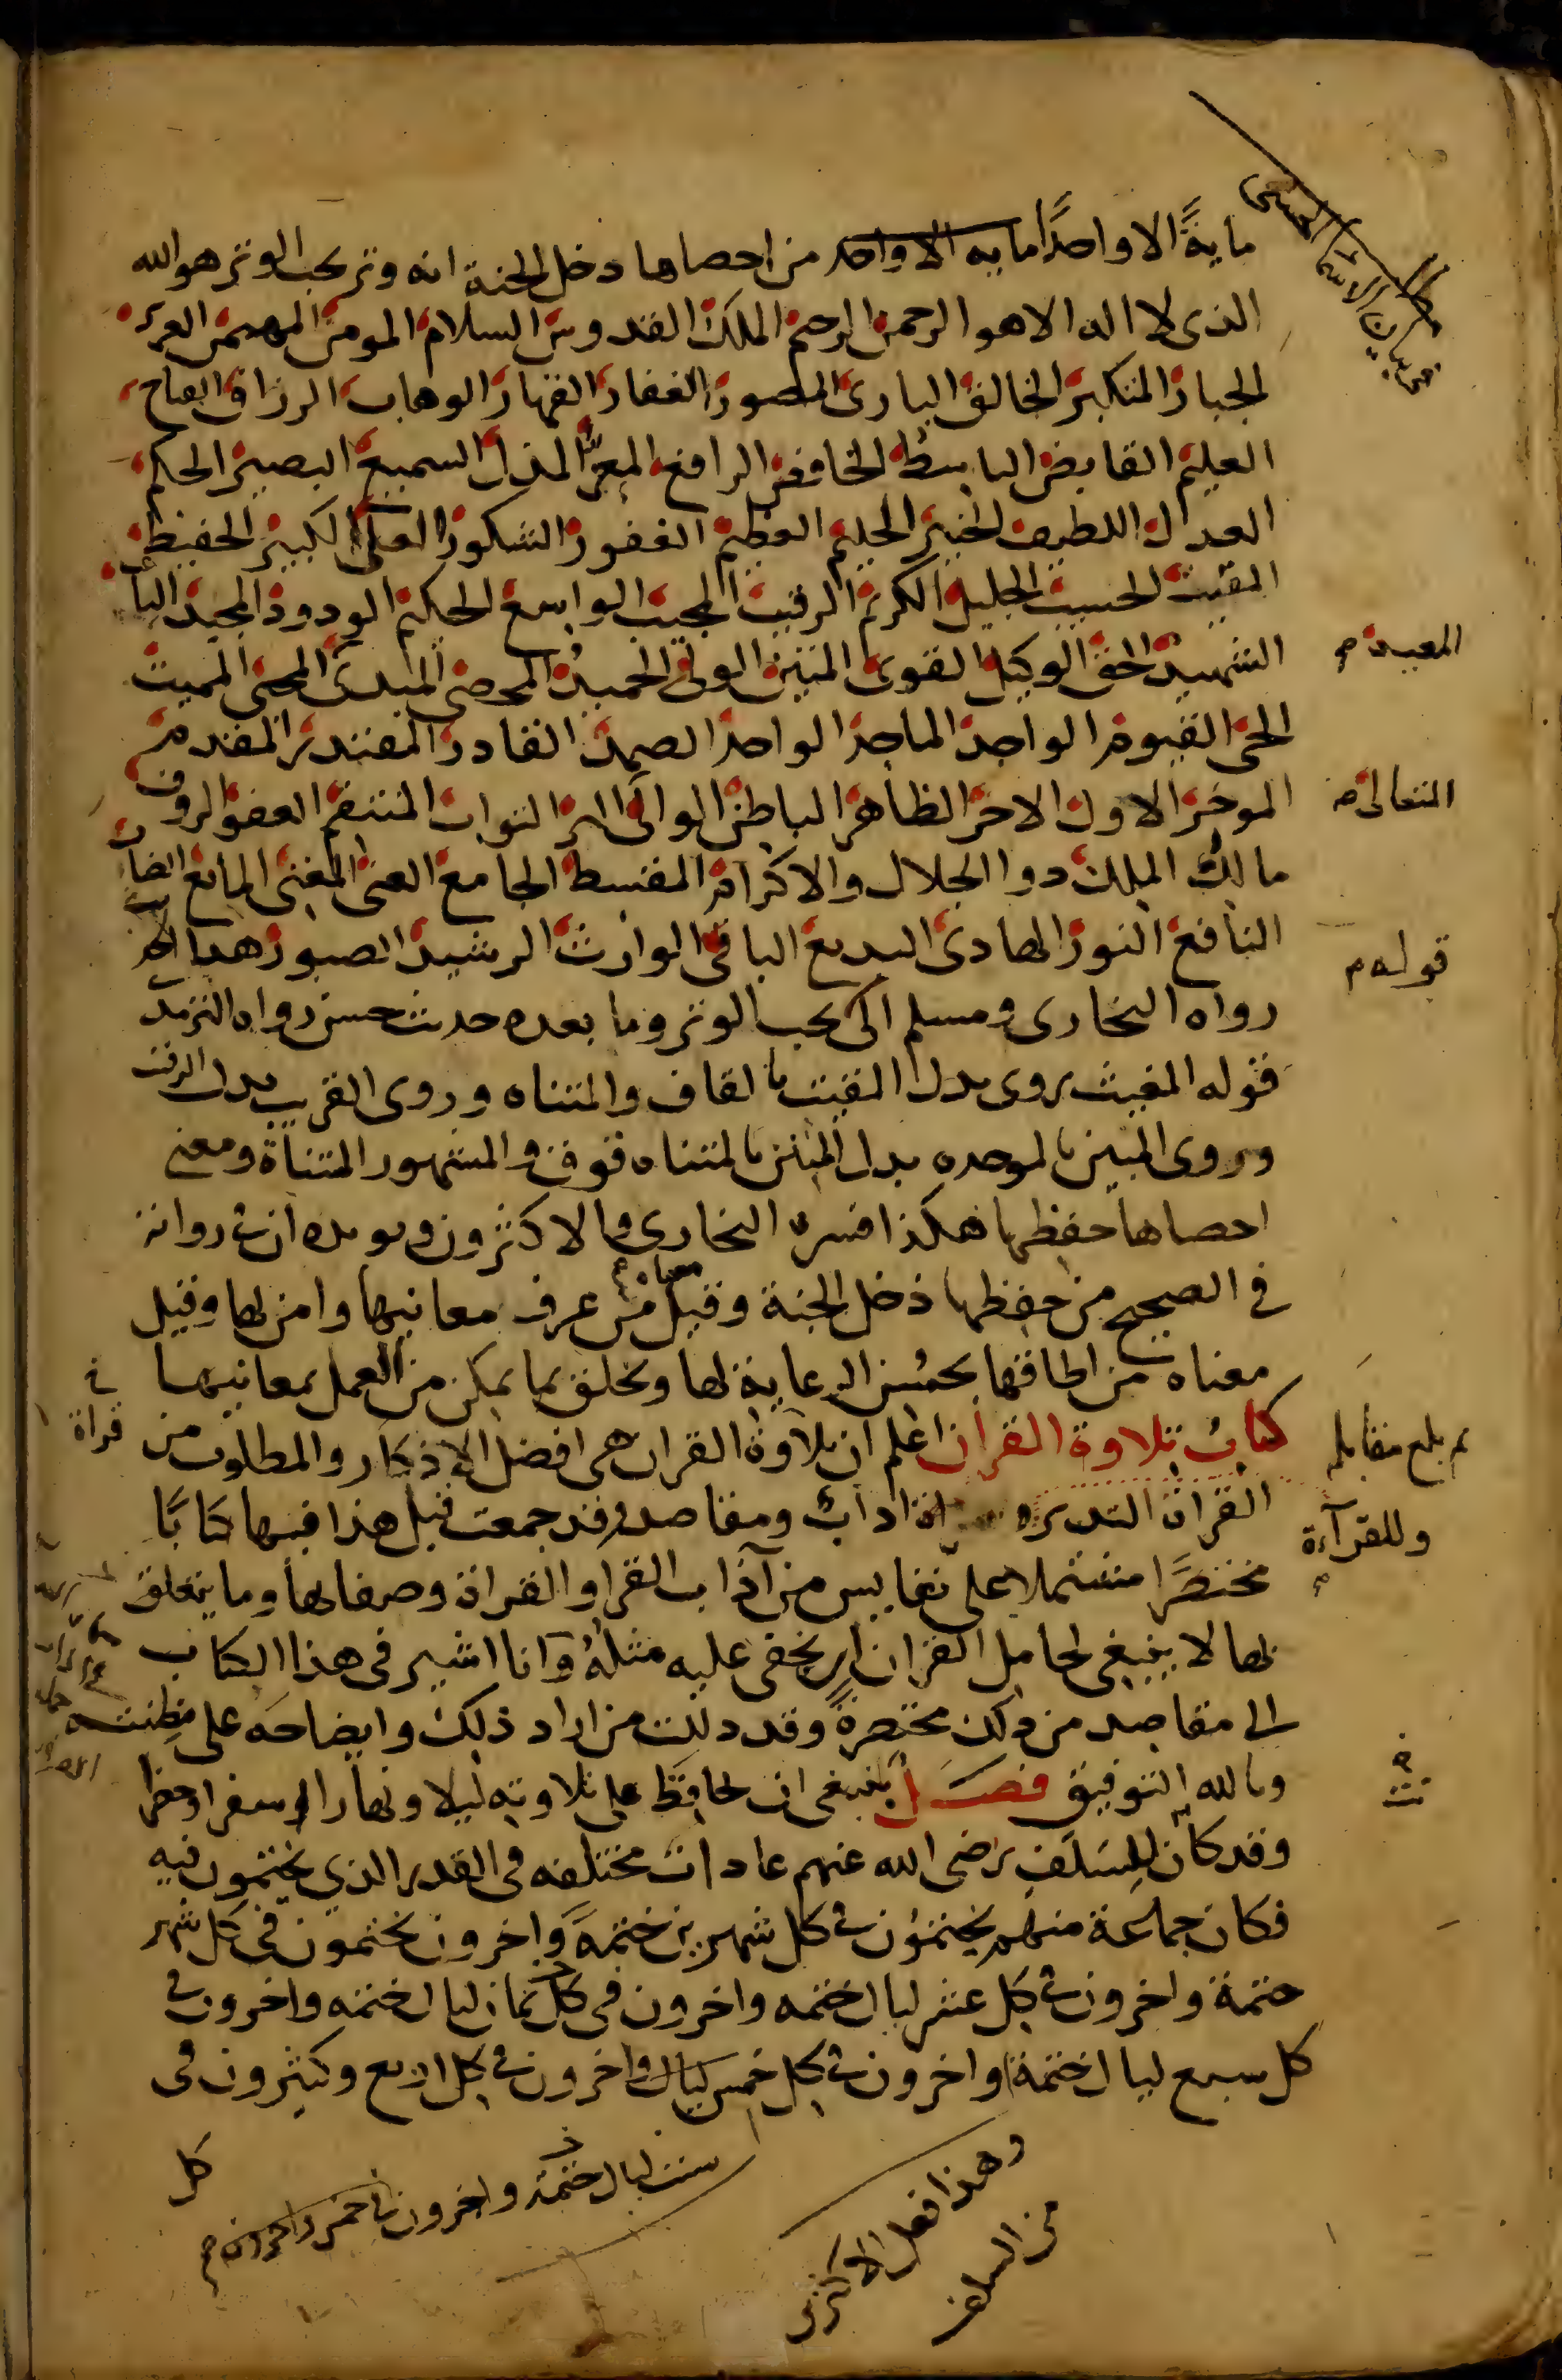 في بيان الاسماء الحسنى
ماية الا واحدًا مايه الا واحد من احصاها دخل الجنة انه وتر يحب الوتر هو الله
الذى لا اله الا هو الرحمن الرحيم الملك القدوس السلام المومن المهيمن العزيز
الجبار المتكبر الخالق البارئ المصور الغفار القهار الوهاب الرزاق الفتاح
العليم القابض الباسط الخافض الرافع المعزّ المذل السميع البصير الحكم
العدل اللطيف الخبير الحليم العظيم الغفور الشكور العلى الكبير الحفيظ
المقيت الحسيب الجليل الكريم الرقيب المجيب الواسع الحكيم الودود المجيد الباعث
الشهيد الحق الوكيل القوى المتين الولى الحميد المحصى المبدئ المحيى المميت
المعيد م
الحى القيوم الواجد الماجد الواحد الصمد القادر المقتدر المقدم
الموخر الاول الاخر الظاهر الباطن الوالى البر التواب المنتقم العفو الروف
المتعالى م
مالك الملك ذوا الجلال والاكرام المقسط الجامع الغنى المغنى المانع الضار
النافع النور الهادى البديع الباقى الوارث الرشيد الصبور هذا
قوله م
رواه البخارى ومسلم الى يحب الوتر وما بعده حديث حسن رواه الترمذ
قوله المغيث روى بدل المقيت بالقاف والمثناه وروى القريب بدل الرقيب
وروى المبين بالموحده بدل المتين بالمثناه فوق والمشهور المثناة ومعنى
احصاها حفظها هكذا فسره البخارى والاكثرون ويويده ان فى رواية
فى الصحيح من حفظها دخل الجنة وقيل معناه من عرف معانيها وامن بها وقيل
معناه من اطاقها بحُسن الرعاية لها وتخلق بما يمكن من العمل بمعانيها
كتابُ تلاوة القرآن اعلم ان تلاوة القران هى افضل الاذكار والمطلوب من
فى
قراة
ثم بلغ مقابله
القران التدبر اداب ومقاصد وقد جمعت قبل هذا فيها كتابًا
وللقرآءة م
مختصرًا مشتملا على نفايس من آداب القرا والقراة وصفاتها وما يتعلق
بها لا ينبغى لحامل القران ان يخفى عليه مثلهُ وانا اشير فى هذا الكتاب
الى مقاصد من ذلك مختصرةً وقد دللت من اراد ذلك وايضاحه على مظنته
وبالله التوفيق فصل ينبغى ان يحافظ على تلاوته ليلا ونهارا سفرا وحضرا
وقد كان للسلف رضى الله عنهم عادات مختلفه فى القدر الذي يختمون فيه
فكان جماعة منهم يختمون فى كل شهرين ختمةً واخرون يختمون فى كل شهر
ختمة واخرون فى كل عشر ليال ختمه واخرون فى كل ثمان ليال ختمه واخرون فى
كل سبع ليال ختمة واخرون فى كل خمس ليال واخرون فى كل اربع وكثيرون فى
كل
وهذا فعل الاكثرين
من السلف
ست ليال ختمة واخرون فى خمس واخرون م